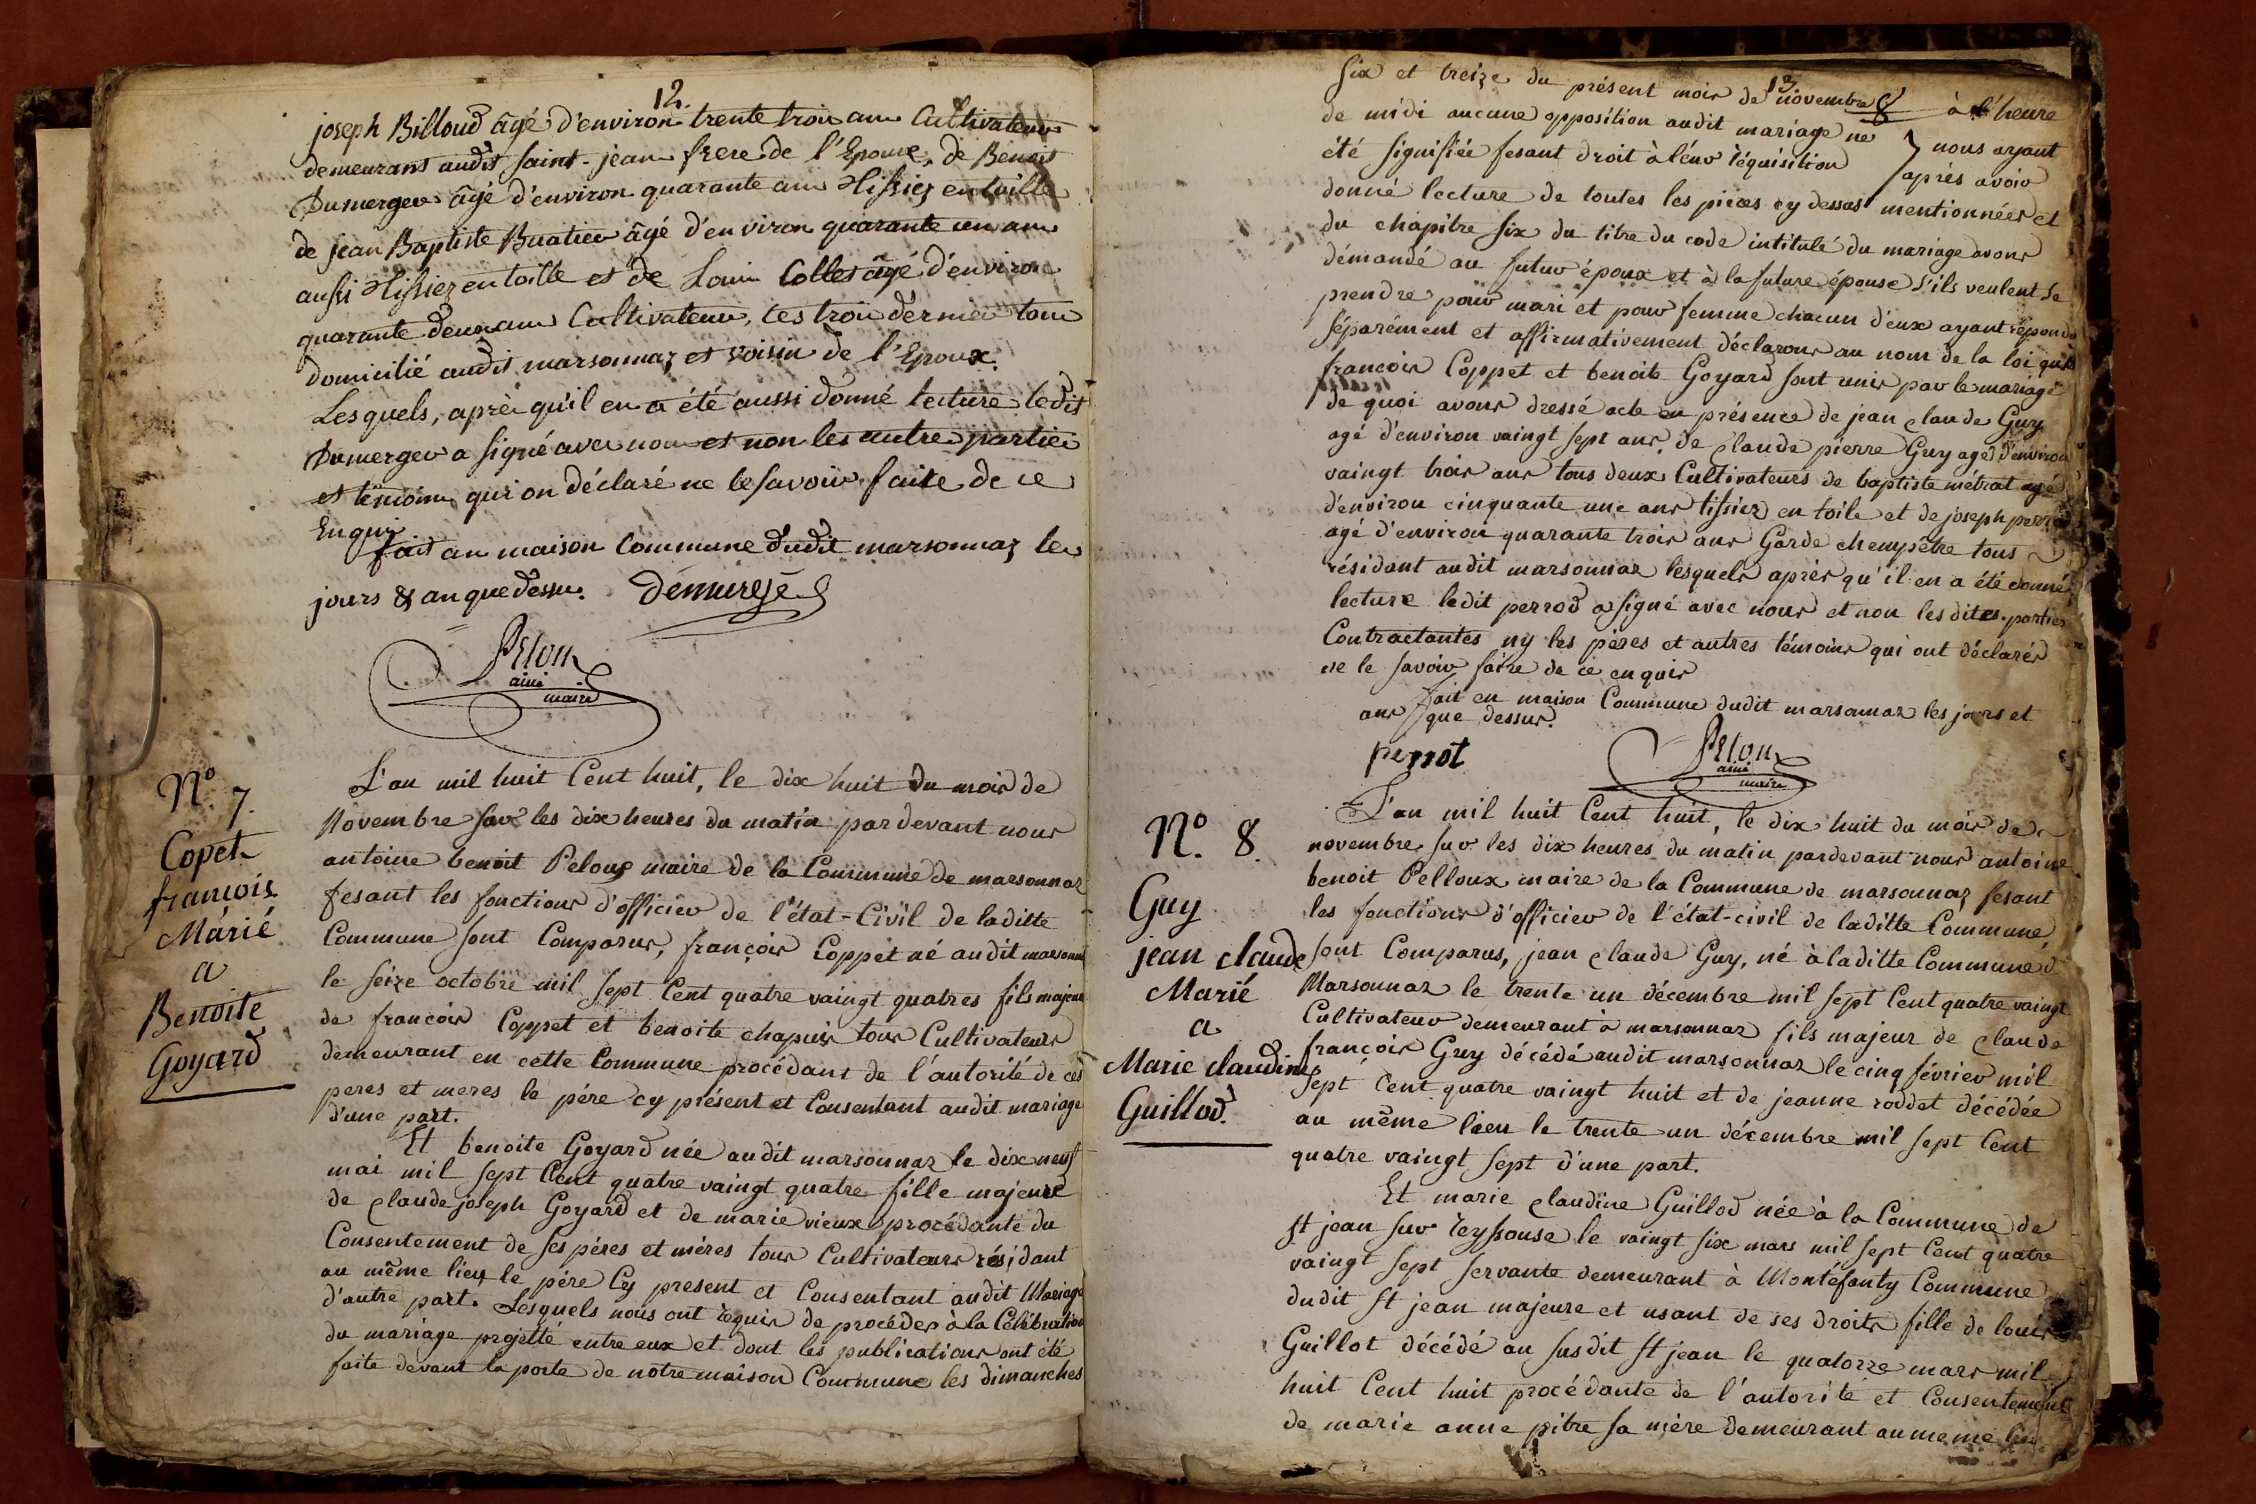 12.
joseph Billoud âgé d'environ trente trois ans Cultivateur
demeurans audit saint-jean frere de l'Epouse, de Benoit
Dumerger âgé d'environ quarante ans Tissiez en toille
de jean Baptiste Buatier âgé d'environ quarante un ans
aussi Tissiez en toille et de Louis Collet âgé d'environ
quarante deux ans Cultivateur, les trois dernier tous
domicilié audit marsonnaz et voisin de l'Epoux.
Lesquels, après qu'il en a été aussi donné lecture ledit
Dumerger a signé avec nous et non les autre partie
et témoins qui on déclaré ne le savoir faire de ce
Enquis
fait en maison Commune dudit marsonnaz les
jours & an que dessus. Démurgé
Pelou
ainé
maire
N° 7.
Copet
françois
Márié
a
Benoite
Goyard
L'an mil huit Cent huit, le dix huit du mois de
Novembre sur les dix heures du matin pardevant nous
antoine benoit Peloux maire de la Commune de marsonnaz
fesant les fonctions d'officier de l'état-Civil de laditte
Commune sont Comparus, françois Coppet né audit marsonnaz
le seize octobre mil sept Cent quatre vaingt quatres fils majeur
de françois Coppet et benoite chapuis tous Cultivateurs
demeurant en cette Commune procédant de l'autorité de ces
peres et meres le pére cy présent et Consentant audit mariage
d'une part.
Et benoite Goyard née audit marsonnaz le dix neuf
mai mil sept Cent quatre vaingt quatre fille majeure
de claude joseph Goyard et de marie vieux procédante du
Consentement de ses péres et méres tous Cultivateurs résidant
au même lieu le pére Cy present et Consentant audit Mariage
d'autre part. Lesquels nous ont requis de procéder à la Célébration
du mariage projetté entre eux et dont les publications ont été
faite devant la porte de notre maison Commune les dimanches
13.
six et treize du présent mois de novembre à l'heure
de midi aucune opposition audit mariage ne nous ayant
été signifiée fesant droit à leur réquisition après avoir
donné lecture de toutes les pièces cy dessus mentionnées et
du chapitre six du titre du code intitulé du mariage avons
démandé au futur époux et à la future épouse s'ils veulent se
prendre pour mari et pour femme chacun d'eux ayant répondu
séparément et affirmativement déclarons au nom de la loi que
françois Coppet et benoite Goyard sont unis par le mariage
de quoi avons dressé acte en présence de jean claude Guy
agé d'environ vaingt sept ans, de claude pierre Guy agé d'environ
vaingt trois ans tous deux Cultivateurs de baptiste métrat agé
d'environ cinquante une ans tissiez en toile et de joseph perrod
agé d'environ quarante trois ans Garde chempetre tous
résidant audit marsonnaz lesquels après qu'il en a été donné
lecture ledit perrod a signé avec nous et non les dites parties
Contractantes ny les pères et autres témoins qui ont déclarés
ne le savoir faire de ce enquis
fait en maison Commune dudit marsonnaz les jours et
ans que dessus.
perrot
Pelou
ainé
maire
N°. 8.
Guy
jean claude
Marié
a
Marie claudine
Guillod.
L'an mil huit Cent huit, le dix huit du mois de
novembre sur les dix heures du matin pardevant nous antoine
benoit Pelloux maire de la Commune de marsonnaz fesant
les fonctions d'officier de l'état-civil de laditte Commune
sont Comparus, jean claude Guy, né à laditte Commune d
Marsonnaz le trente un décembre mil sept Cent quatre vaingt
Cultivateur demeurant à marsonnaz fils majeur de claude
françois Guy décédé audit marsonnaz le cinq février mil
sept Cent quatre vaingt huit et de jeanne roddet décédée
au même lieu le trente un décembre mil sept Cent
quatre vaingt sept d'une part.
Et marie claudine Guillod née à la Commune de
st jean sur reyssouse le vaingt six mars mil sept Cent quatre
vaingt sept servante demeurant à Montéfanty Commune
dudit st jean majeure et usant de ses droits fille de louis
Guillot décédé au susdit st jean le quatorze mars mil
huit Cent huit procédante de l'autorité et Consentement
de marie anne pitre sa mère demeurant au meme lieu